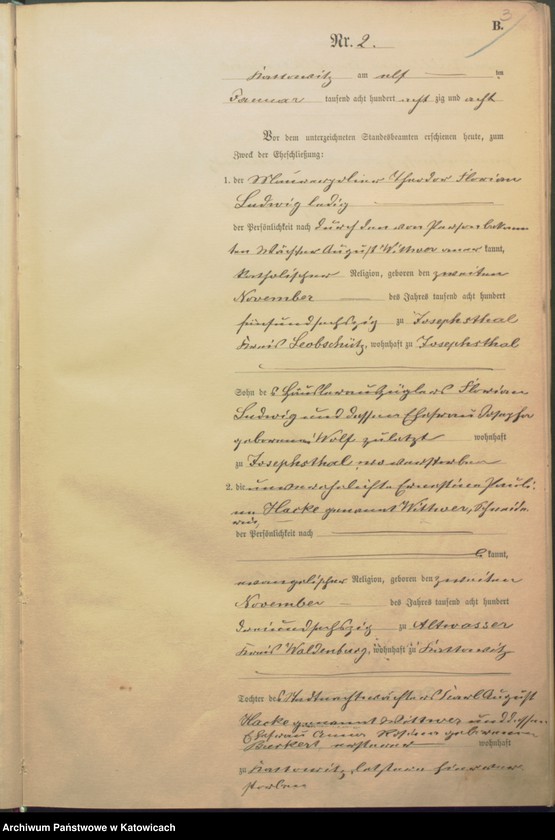 3
B.
Nr. 2.
Kattowitz am elf ten
Januar tausend acht hundert acht zig und acht
Vor dem unterzeichneten Standesbeamten erschienen heute, zum
Zweck der Eheschließung:
1. der Maurerpolier Theodor Florian
Ludwig ledig
der Persönlichkeit nach durch den von Person bekann
ten Wächter August Wittwer aner kannt,
katholischer Religion, geboren den zweiten
November des Jahres tausend acht hundert
fünfundsechszig zu Josephsthal
Kreis Leobschütz, wohnhaft zu Josephsthal
Sohn des Häuslerauszüglers Florian
Ludwig und dessen Ehefrau Josepha
geborenen Wolf zuletzt wohnhaft
zu Josephsthal, wo verstorben
2. die unverehelichte Ernestine Pauli-
ne Hacke genannt Wittwer, Schneide-
rin,
der Persönlichkeit nach
kannt,
evangelischer Religion, geboren den zweiten
November des Jahres tausend acht hundert
dreiundsechszig zu Altwasser
Kreis Waldenburg, wohnhaft zu Kattowitz
Tochter des Stadtnachtwächters Karl August
Hacke genannt Wittwer und dessen
Ehefrau Anna Rosina geborenen
ersterer wohnhaft
zu Kattowitz, letztere hier ver-
storben
Archiwum Państwowe w Katowicach